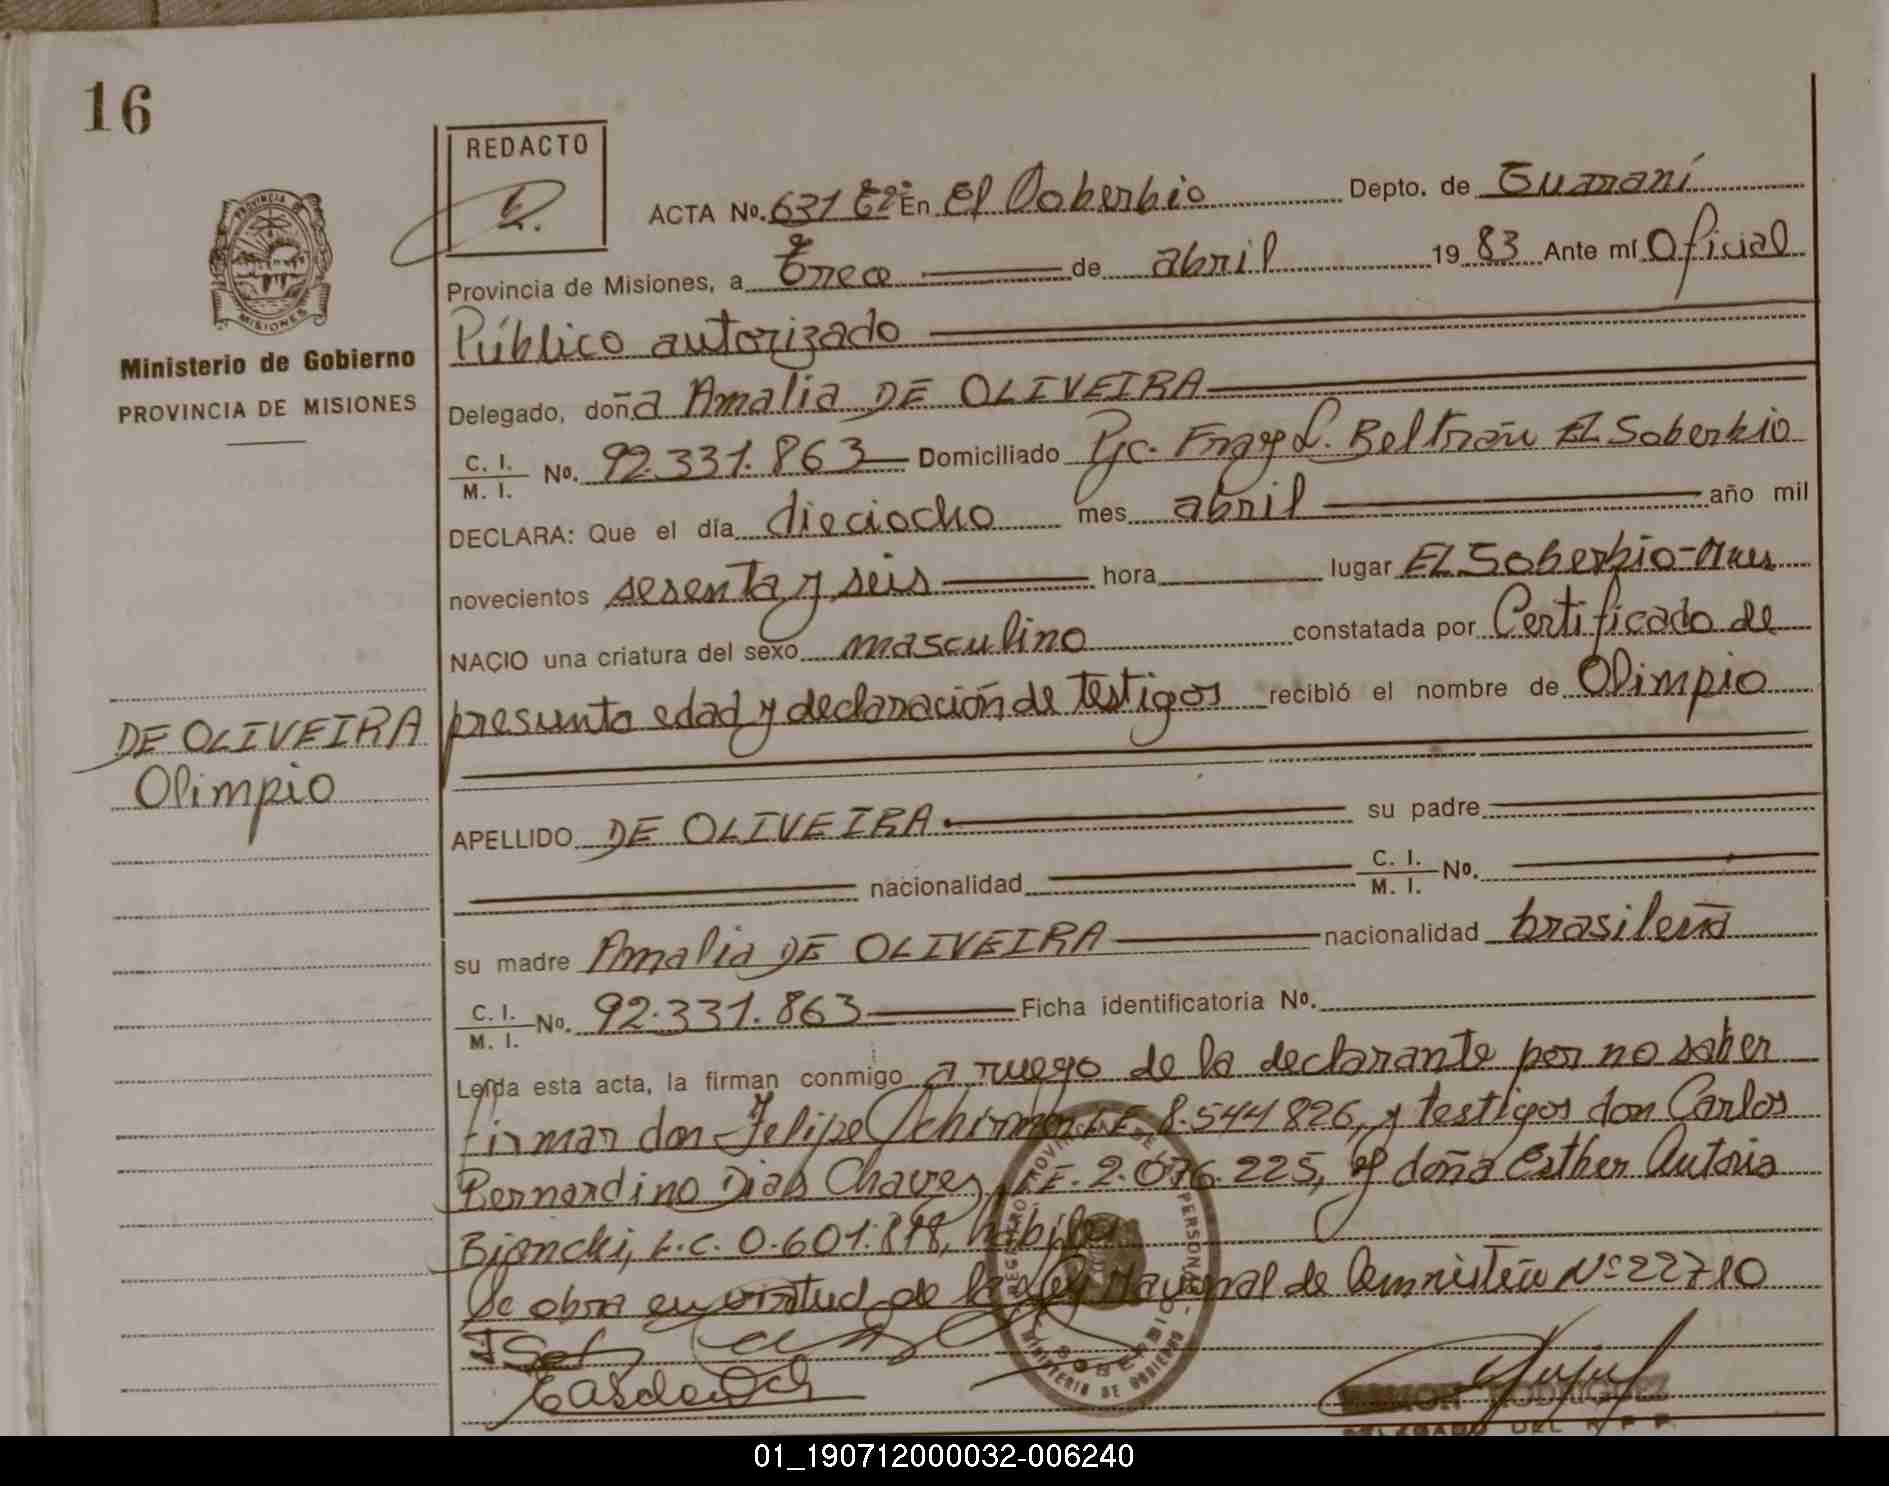 16
REDACTO
ACTA No. 631 En El Soberbio Depto. de Guaraní
Provincia de Misiones, a Trece de abril 1983 Ante mí Oficial
Público autorizado
Ministerio de Gobierno
PROVINCIA DE MISIONES
Delegado, doña Amalia DE OLIVEIRA
C. I.
M. I. No. 92.331.863 Domiciliado Pje. Fray L. Beltrán El Soberbio
DECLARA: Que el día dieciocho mes abril año mil
novecientos sesenta y seis hora lugar El Soberbio-Mnes
NACIO una criatura del sexo masculino constatada por Certificado de
presunta edad y declaración de Testigos recibió el nombre de Olimpio
DE OLIVEIRA
Olimpio
APELLIDO DE OLIVEIRA su padre
nacionalidad C. I.
M. I. No.
su madre Amalia DE OLIVEIRA nacionalidad brasileña
C. I.
M. I. No. 92.331.863 Ficha identificatoria No.
Leída esta acta, la firman conmigo a ruego de la declarante por no saber
firmar don Felipe LE 8.544826, y testigos don Carlos
Bernardino Dias Chaves, L.E. 2.076.225, y doña Esther
L.C. 0.601.818, hábiles
Se obra en virtud de la Ley Nacional de Nº 22710
REGISTRO PROVINCIAL DE PERSONAS
SOBERBIO
MINISTERIO DE GOBIERNO
RAMON RODRIGUEZ
DELEGADO DEL R P P
01_190712000032-006240